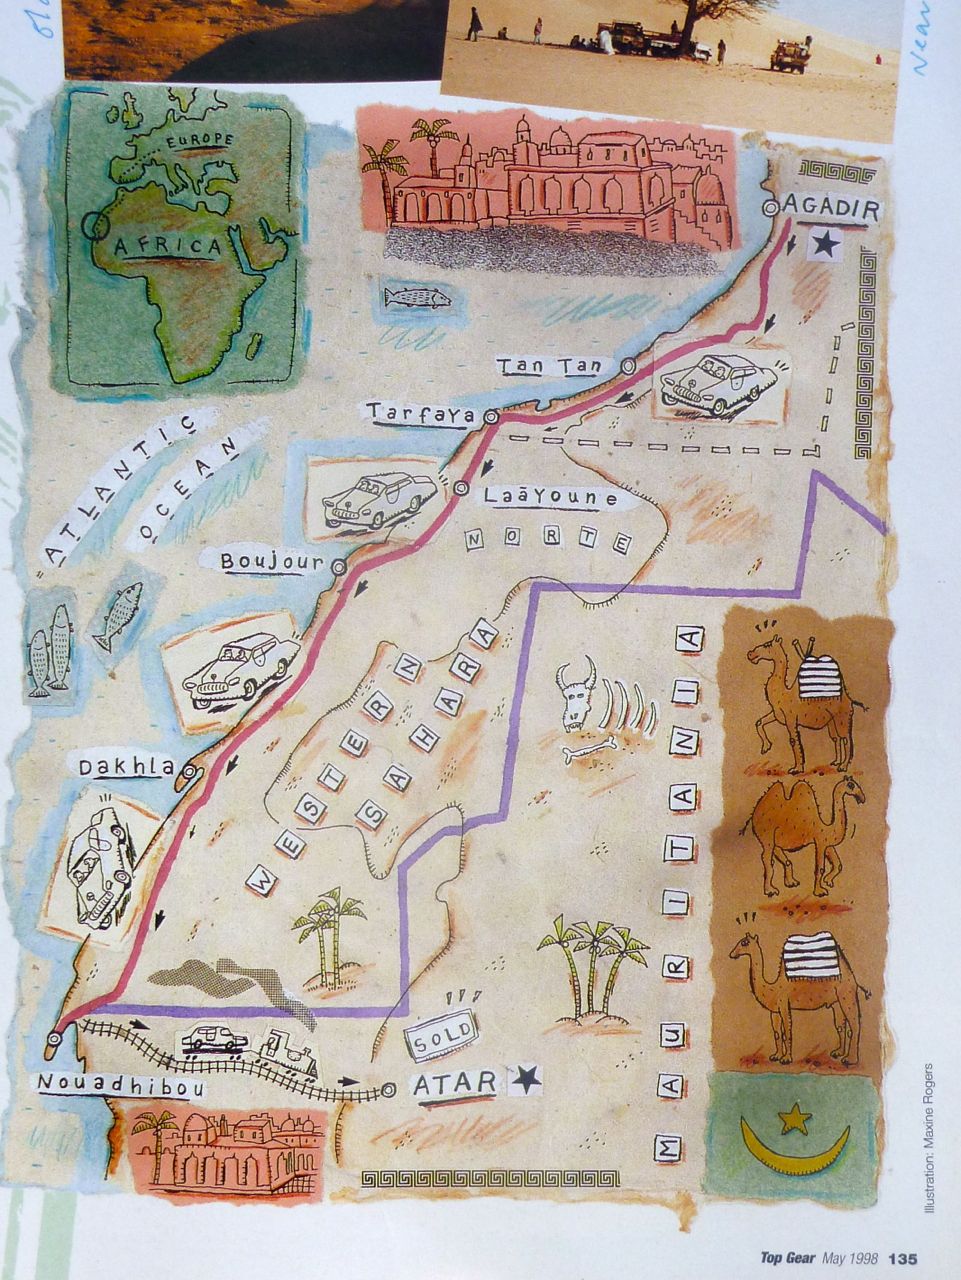 EUROPE
AFRICA
AGADIR
Tan Tan
Tarfaya
ATLANTIC
OCEAN
Laãyoune
NORTE
Boujour
WESTERN
SAHARA
Dakhla
MAURITANIA
SOLD
ATAR
Nouadhibou
Illustration: Maxine Rogers
Top Gear May 1998 135